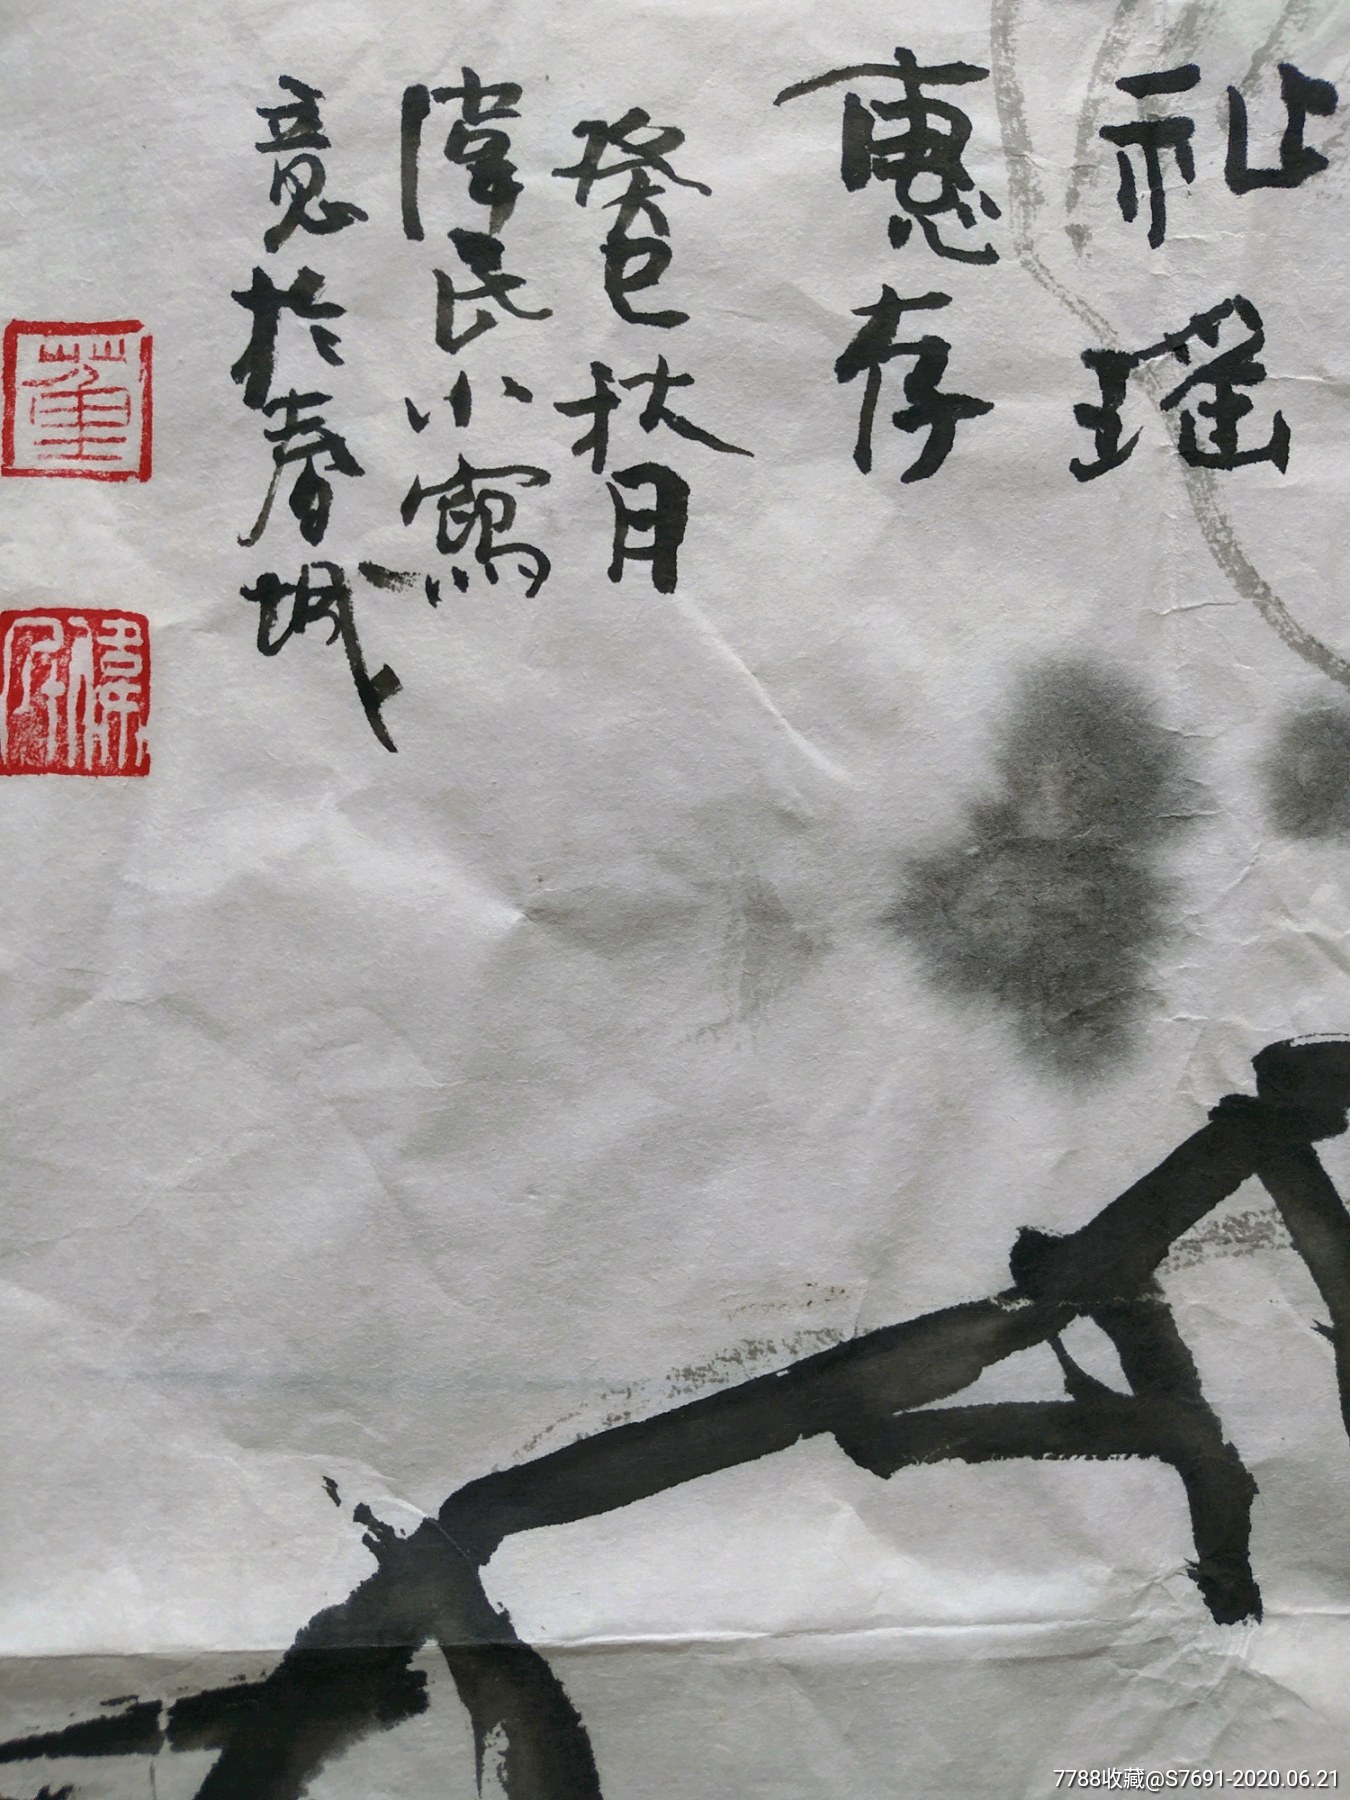 祉瑶
惠存
癸巳秋月
偉民小寫
意於春城
董
7788收藏@S7691-2020.06.21